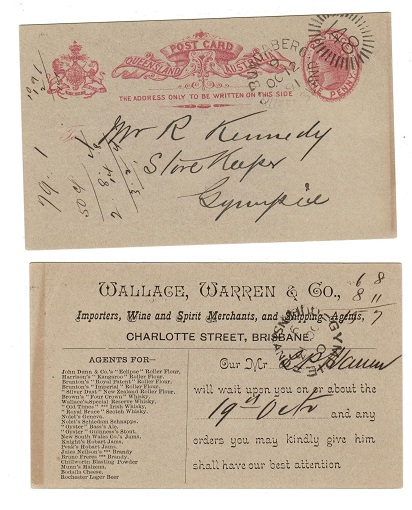 POST CARD
QUEENSLAND AUSTRALIA
THE ADDRESS ONLY TO BE WRITTEN ON THIS SIDE
PENNY
BUNDABERG
48
Mr R Kennedy
Store Keeper
Gympie
WALLACE, WARREN & Co.,
Importers, Wine and Spirit Merchants, and Shipping Agents,
CHARLOTTE STREET, BRISBANE.
6 8
8 11
7
AGENTS FOR—
John Dunn & Co.'s "Eclipse" Roller Flour.
Harrison's "Kangaroo" Roller Flour.
Brunton's "Royal Patent" Roller Flour.
Brunton's "Imperial" Roller Flour.
"Silver Dust" New Zealand Roller Flour.
Brown's "Four Crown" Whisky.
Wallace's Special Reserve Whisky.
"Old Times" *** Irish Whisky.
"Royal Bruce" Scotch Whisky.
Nolet's Geneva.
Nolet's Schiedam Schnapps.
"Oyster" Bass's Ale.
"Oyster" Guinness's Stout.
New South Wales Co.'s Jams.
Knight's Hobart Jams.
Peak's Hobart Jams.
Jules Neilson's *** Brandy
Bruno Freres *** Brandy.
Chilworth Blasting Powder
Bodalla Cheese.
Rochester Lager Beer
Our Mr. Warren
will wait upon you on or about the
19th Octr and any
orders you may kindly give him
shall have our best attention
GYMPIE
QUEENSLAND